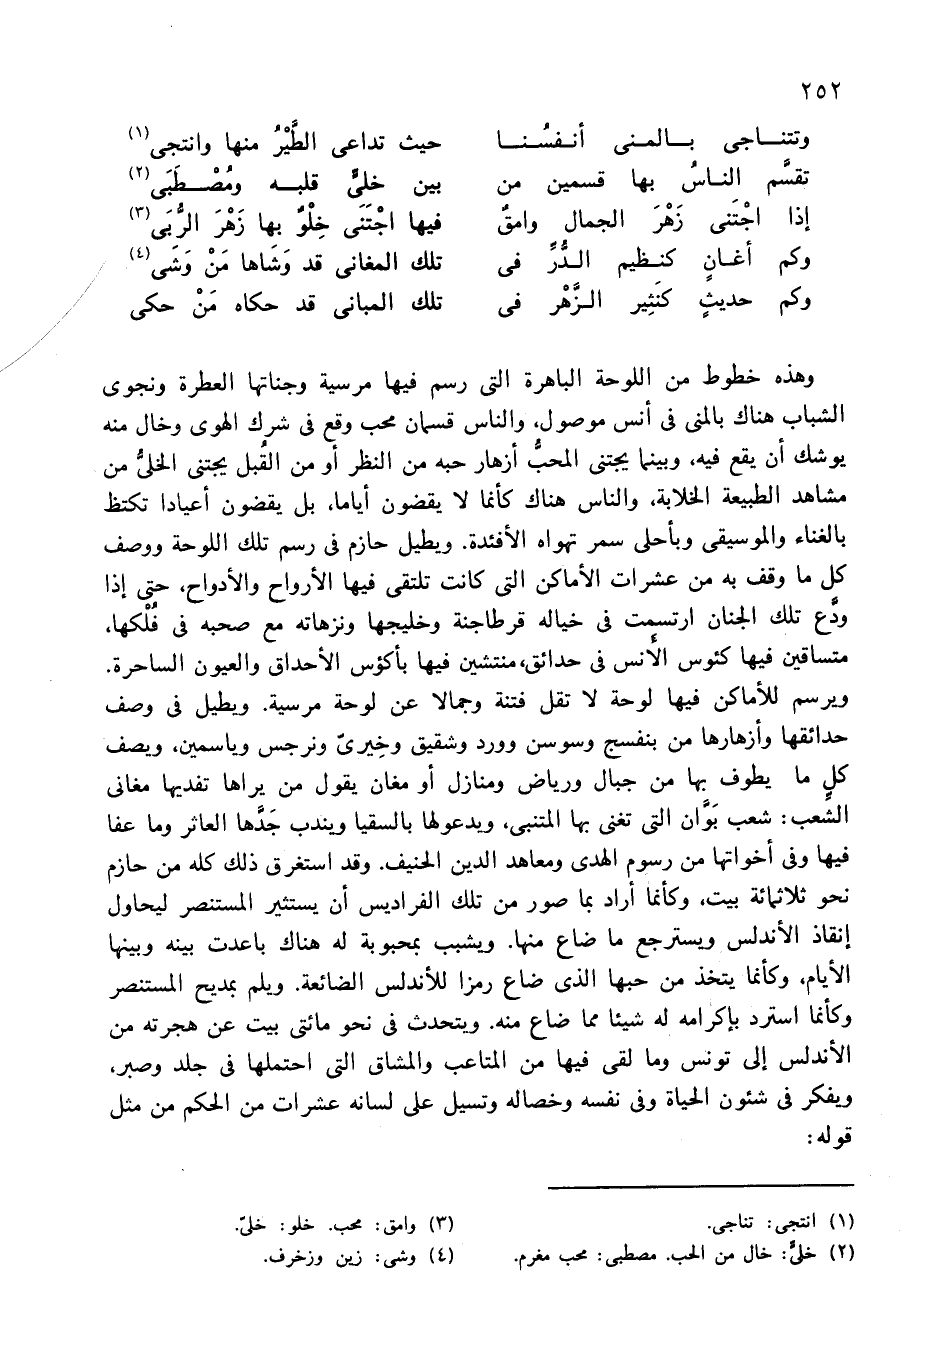 ٢٥٢
وتتنـاجى بـالمنى أنـفسُنـا حيث تداعى الطَّيْرُ منها وانتجى(١)
تقسَّم النـاسُ بها قسمين من بين خلىٍّ قلبـه ومُصْـطَبَى(٢)
إذا اجْتَنى زَهْرَ الجمال وامقٌ فيها اجْتَنَى خِلْوٌ بها زَهْرَ الرُّبَى(٣)
وكم أغـانٍ كنـظيم الـدُّرِّ فى تلك المغانى قد وَشَاها مَنْ وَشَى(٤)
وكم حديثٍ كنَثِير الـزَّهْر فى تلك المبانى قد حكاه مَنْ حكى
وهذه خطوط من اللوحة الباهرة التى رسم فيها مرسية وجناتها العطرة ونجوى
الشباب هناك بالمنى فى أنس موصول، والناس قسمان محب وقع فى شرك الهوى وخال منه
يوشك أن يقع فيه، وبينما يجتنى المحبُّ أزهار حبه من النظر أو من القُبل يجتنى الخلىُّ من
مشاهد الطبيعة الخلابة، والناس هناك كأنما لا يقضون أياما، بل يقضون أعيادا تكتظ
بالغناء والموسيقى وبأحلى سمر تهواه الأفئدة. ويطيل حازم فى رسم تلك اللوحة ووصف
كل ما وقف به من عشرات الأماكن التى كانت تلتقى فيها الأرواح والأدواح، حتى إذا
ودَّع تلك الجنان ارتسمت فى خياله قرطاجنة وخليجها ونزهاته مع صحبه فى فُلْكها،
متساقين فيها كئوس الأُنس فى حدائق، منتشين فيها بأكؤس الأحداق والعيون الساحرة.
ويرسم للأماكن فيها لوحة لا تقل فتنة وجمالا عن لوحة مرسية. ويطيل فى وصف
حدائقها وأزهارها من بنفسج وسوسن وورد وشقيق وخِيرىّ ونرجس وياسمين، ويصف
كل ما يطوف بها من جبال ورياض ومنازل أو مغان يقول من يراها تفديها مغانى
الشِّعب: شعب بَوَّان التى تغنى بها المتنبى، ويدعولها بالسقيا ويندب جَدَّها العاثر وما عفا
فيها وفى أخواتها من رسوم الهدى ومعاهد الدين الحنيف. وقد استغرق ذلك كله من حازم
نحو ثلاثمائة بيت، وكأنما أراد بما صور من تلك الفراديس أن يستثير المستنصر ليحاول
إنقاذ الأندلس ويسترجع ما ضاع منها. ويشبب بمحبوبة له هناك باعدت بينه وبينها
الأيام، وكأنما يتخذ من حبها الذى ضاع رمزا للأندلس الضائعة. ويلم بمديح المستنصر
وكأنما استرد بإكرامه له شيئا مما ضاع منه. ويتحدث فى نحو مائتى بيت عن هجرته من
الأندلس إلى تونس وما لقى فيها من المتاعب والمشاق التى احتملها فى جلد وصبر،
ويفكر فى شئون الحياة وفى نفسه وخصاله وتسيل على لسانه عشرات من الحكم من مثل
قوله:
(١) انتجى: تناجى.
(٢) خلىٌّ: خال من الحب. مصطبى: محب مغرم.
(٣) وامق: محب. خلو: خلىّ.
(٤) وشى: زين وزخرف.